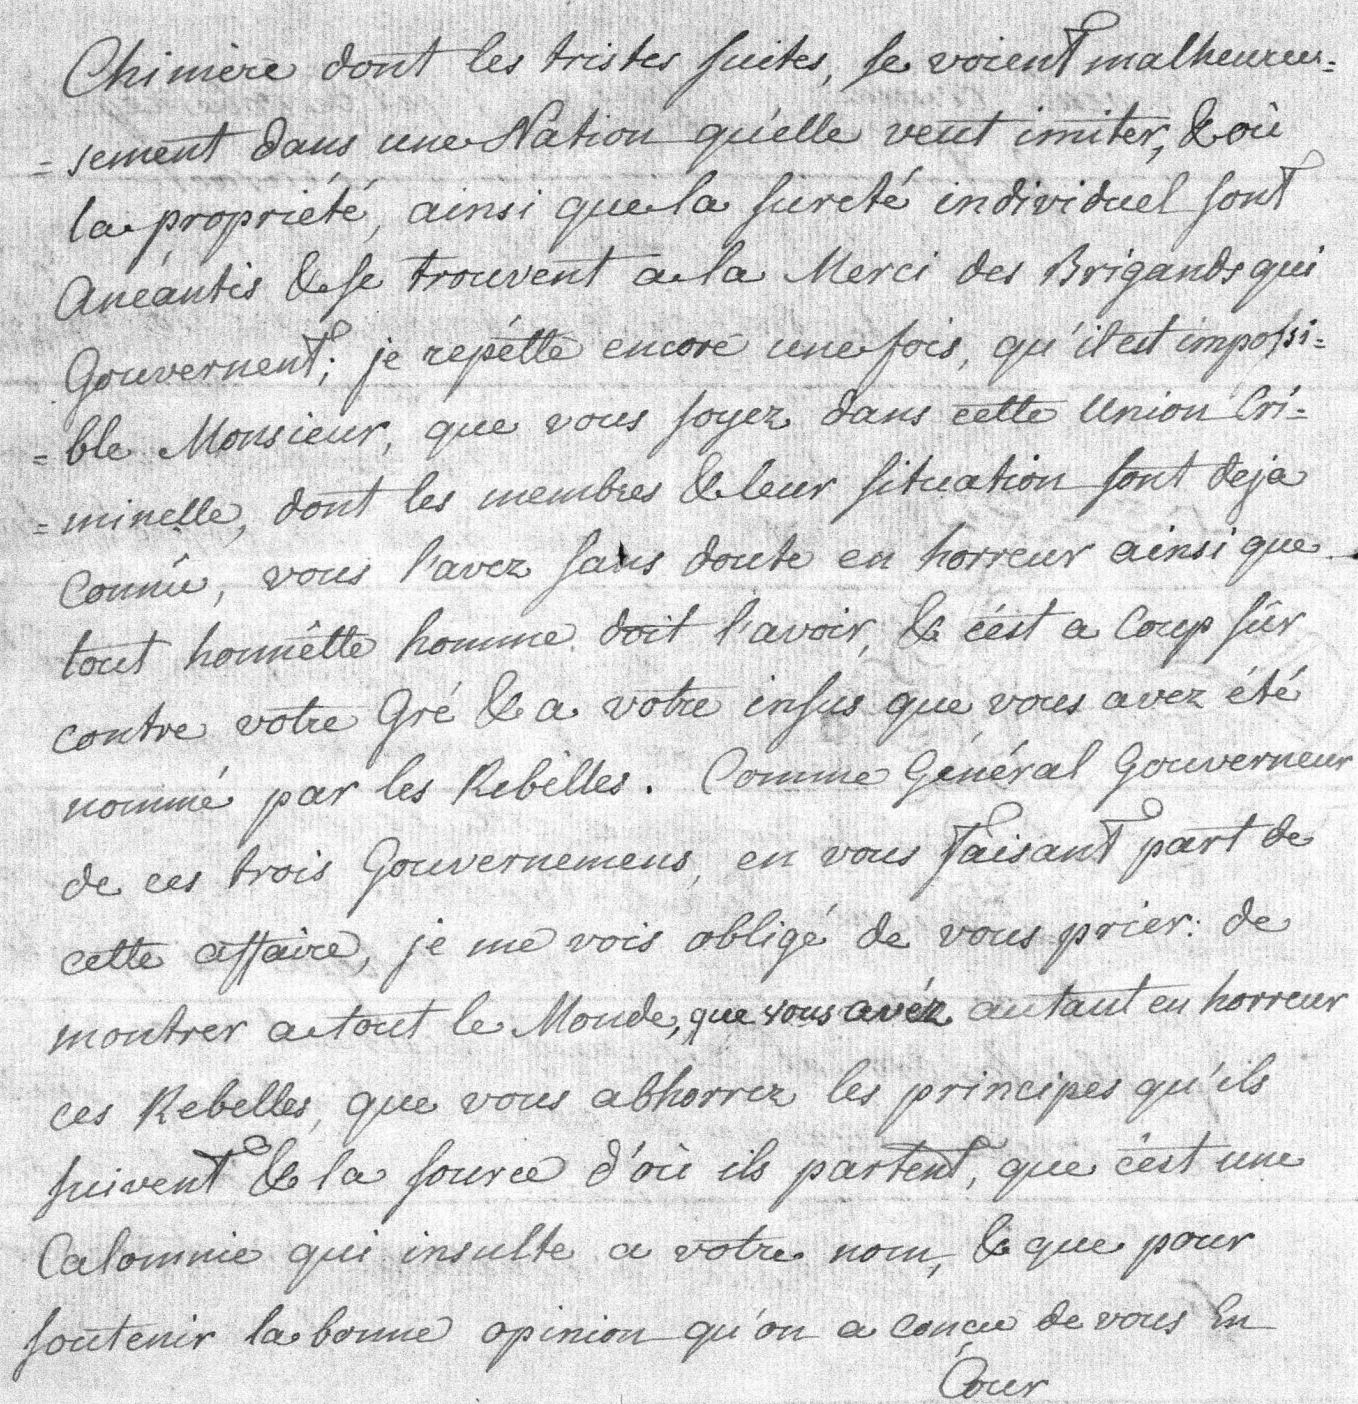 Chimère dont les tristes suites, se voient malheureu=
=sement dans une Nation qu'elle veut imiter, & où
la propriété, ainsi que la sureté individuel sont
Anéantis & se trouvent a la Merci des Brigands qui
Gouvernent; je repétte encore une fois, qu'il est impossi=
=ble Monsieur, que vous soyez dans cette Union Cri=
=minelle, dont les membres & leur situation sont deja
Connûe, vous l'avez sans doute en horreur ainsi que
tout honnêtte homme doit l'avoir, & c'ést a Coup sûr
contre votre Gré & a votre insus que vous avez été
nommé par les Rebélles. Comme Général Gouverneur
de ces trois Gouvernemens, en vous faisant part de
cette affaire, je me vois obligé de vous prier: de
montrer a tout le Monde, que vous avéz autant en horreur
ces Rebelles, que vous abhorrez les principes qu'ils
suivent & la source d'où ils partent, que c'ést une
Calomnie qui insulte a votre nom, & que pour
soutenir la bonne opinion qu'on a conçue de vous En
Cour